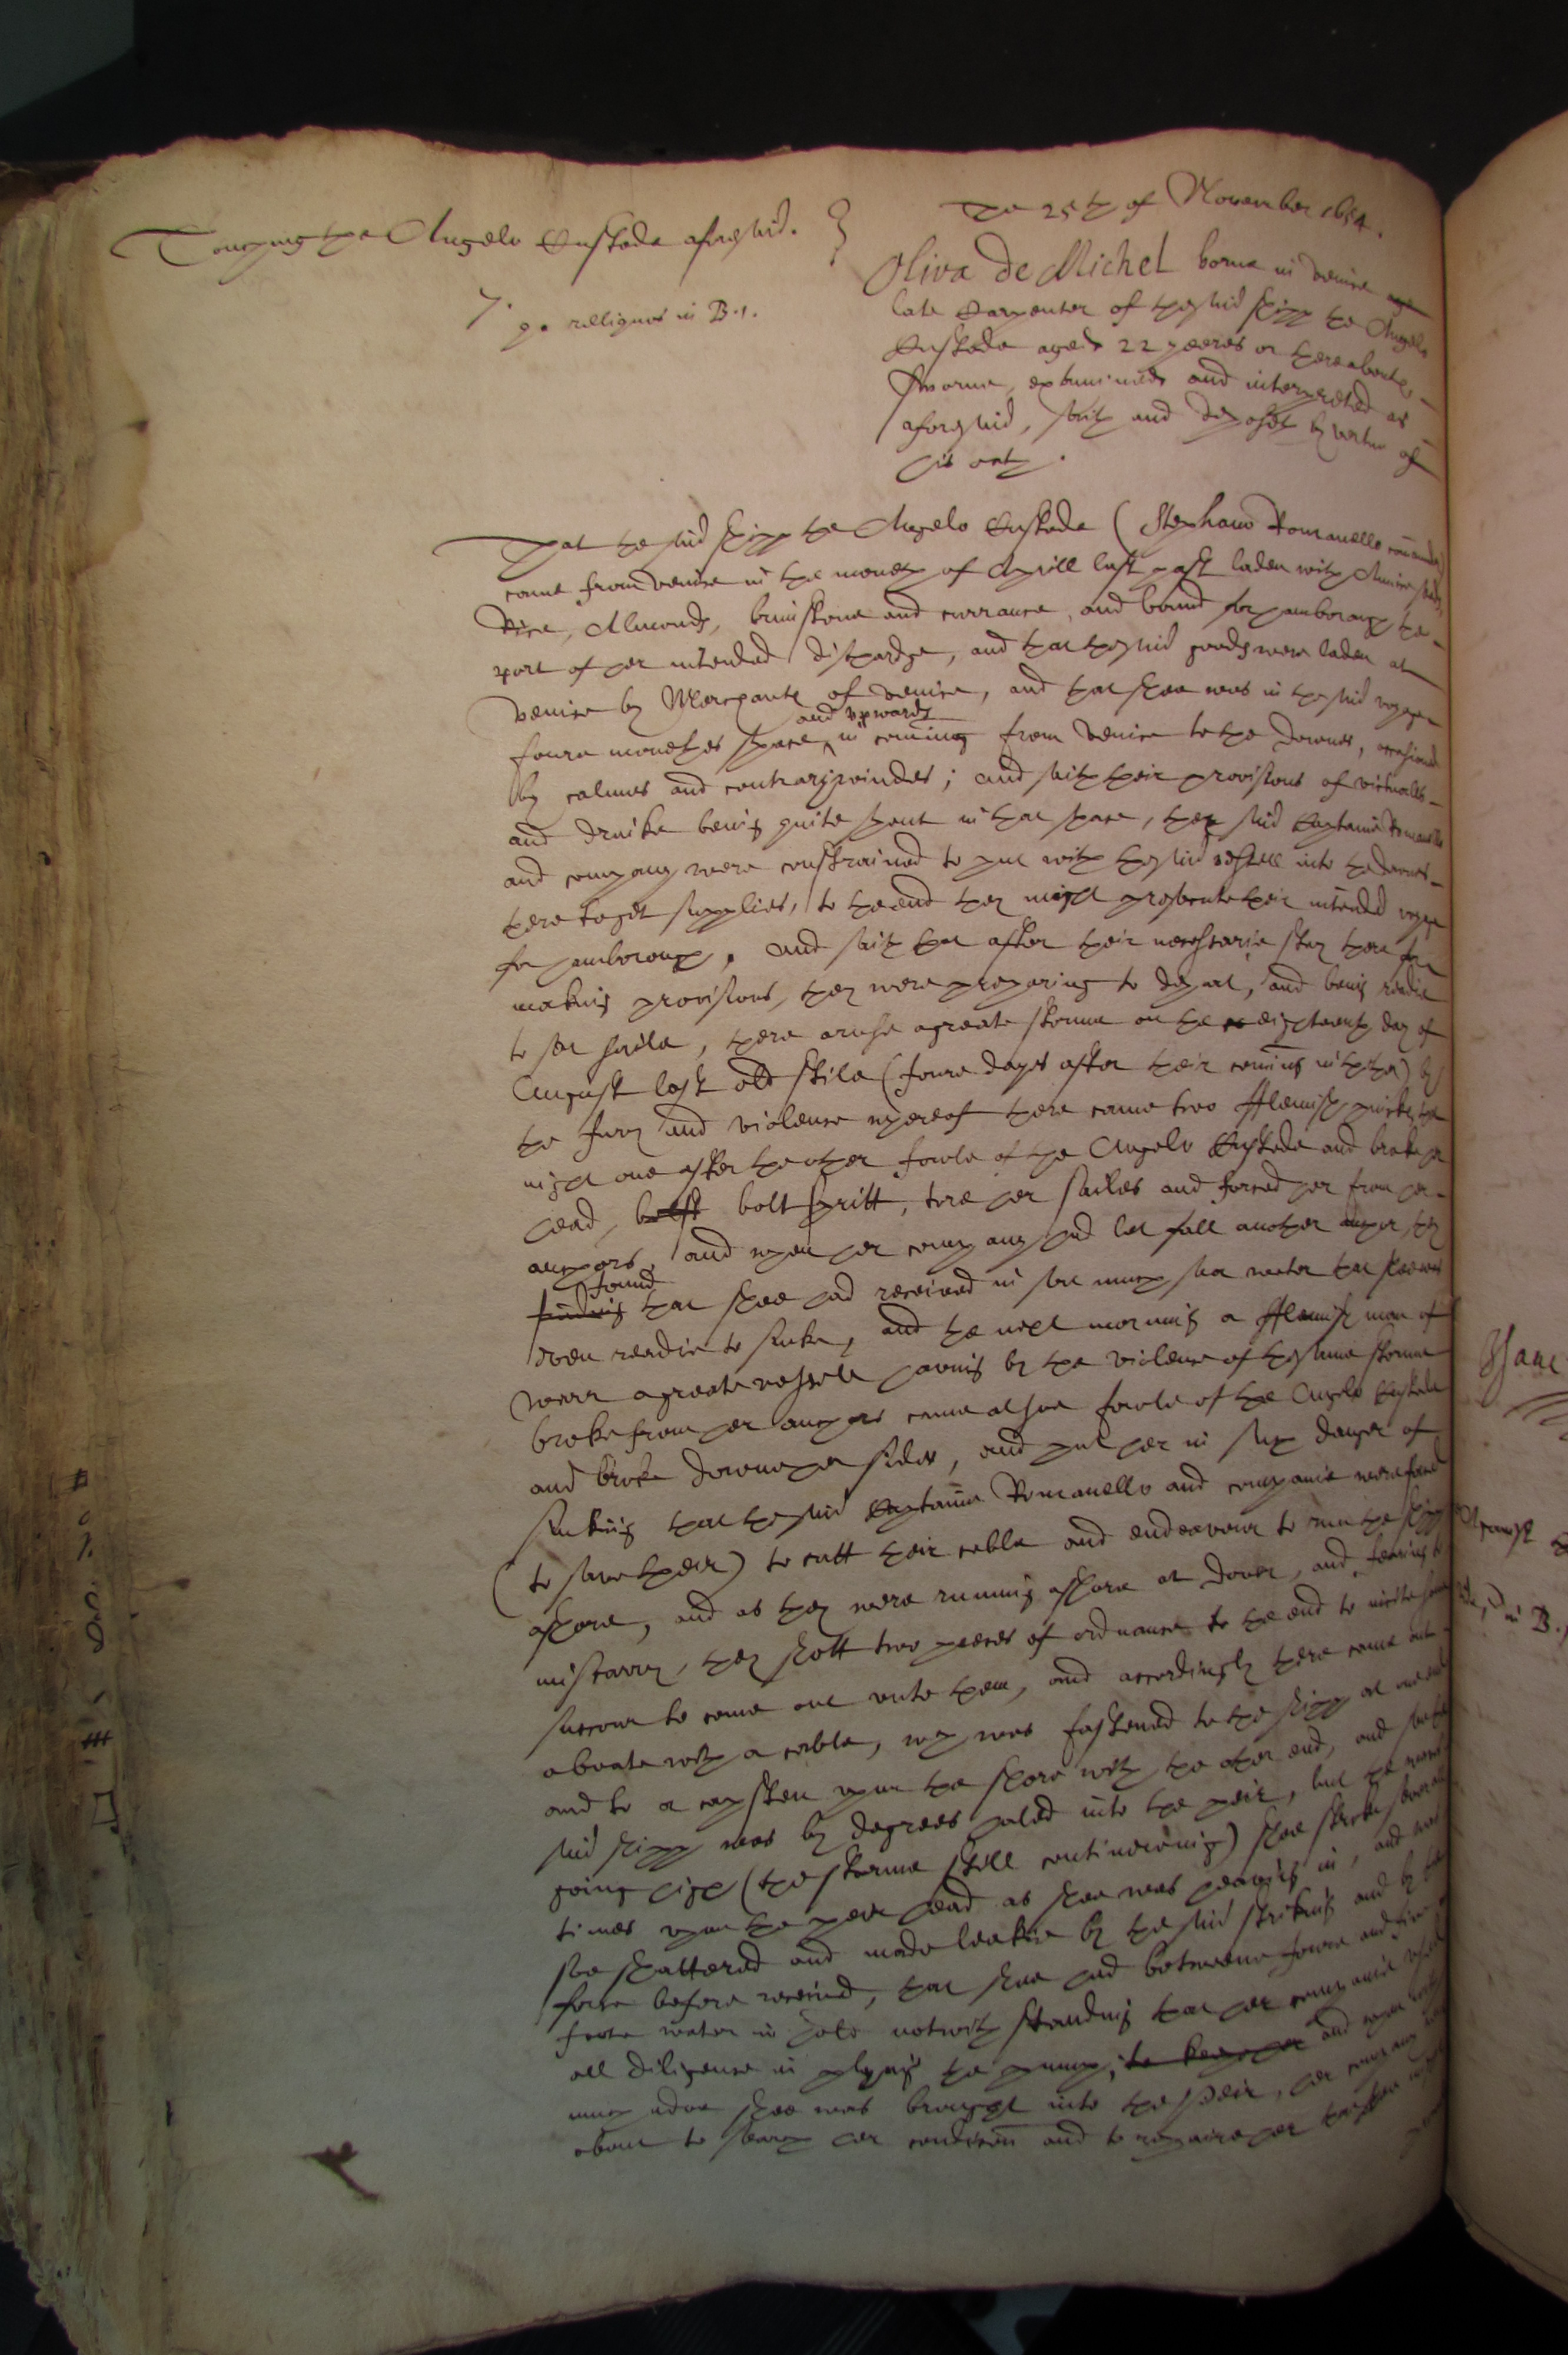 The 25th of November 1654.
Touching the Angelo Custode aforesaid.
7.
q. reliquos in B.1.
Oliva de Michel borne in Venice
late Carpenter of the said shipp the Angelo
Custode aged 22 yeeres or thereabouts,
sworne, examined and interpreted as
aforesaid, saith and deposeth by vertue of
his oath.
That the said shipp the Angelo Custode (Stephano Romanello comander)
came from Venice in the moneth of Aprill last past laden with
Rice, Almonds, brimstone and currance, and bound for hamborough the
port of her intended dischardge, and that the said goods were laden at
Venice by Merchants of Venice, and that shee was in the said voyage
and upwards
foure monethes space in coming from Venice to the Downes, occasioned
by calmes and contrary windes; and saith their provisions of victualls
and drinke being quite spent in that space, the said Captaine Romanello
and company were constrained to put with the said vessell into the Downes
there to get supplies, to the end they might prosecute their intended voyage
for hamborough, and saith that after their necessarie stay there for
making provisions, they were preparing to depart, and being readie
to set saile, there arose a greate storme on the eighteenth day of
August last old stile (foure dayes after their coming in thither) by
the fury and violence whereof there came two fflemish the
night one after the other fowle of the Angelo Custode and brake her
head, boltspritt, tore her sailes and forced her from her
anchors, and when her company had let fall another they
found
finding that shee had received in soe much sea water that shee was
even readie to sinke, and the next morning a fflemish man of
warr a greate vessell having by the violence of the same storme
broke from her anchors came alsoe fowle of the Angelo Custode
and broke downe her sides, and put her in such danger of
sinking that the said Captaine Romanello and companie were forced
(to save their) to cutt their cable and endeavour to run the shipp
ashore, and as they were running ashore at Dover, and fearing to
miscarry, they shott two peeces of ordnance to the end to invite some
succour to come out unto them, and accordingly there came out
a boate with a cable, which was fastened to the shipp at one end
and to a capsten upon the shore with the other end, and soe the
said shipp was by degrees haled into the peir, but the
going high (the storme still continewing) shee stroke severall
times upon the peir head as shee was heaving in, and was
soe shattered and made leakie by the said striking and by the
before received, that shee had betweene foure and five
foote water in hold notwithstanding that her companie used
all diligence in plying the pump, to keepe her and when with
much adoe shee was brought into the peir, her company
about to search her condicon and to repaire her